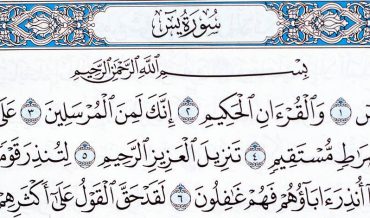 سُورَةُ يسٓ
بِسْمِ ٱللَّهِ ٱلرَّحْمَٰنِ ٱلرَّحِيمِ
١ وَٱلْقُرْءَانِ ٱلْحَكِيمِ ٢ إِنَّكَ لَمِنَ ٱلْمُرْسَلِينَ ٣ عَلَىٰ
مُّسْتَقِيمٍ ٤ تَنزِيلَ ٱلْعَزِيزِ ٱلرَّحِيمِ ٥ لِتُنذِرَ
أُنذِرَ ءَابَآؤُهُمْ فَهُمْ غَٰفِلُونَ ٦ لَقَدْ حَقَّ ٱلْقَوْلُ عَلَىٰٓ